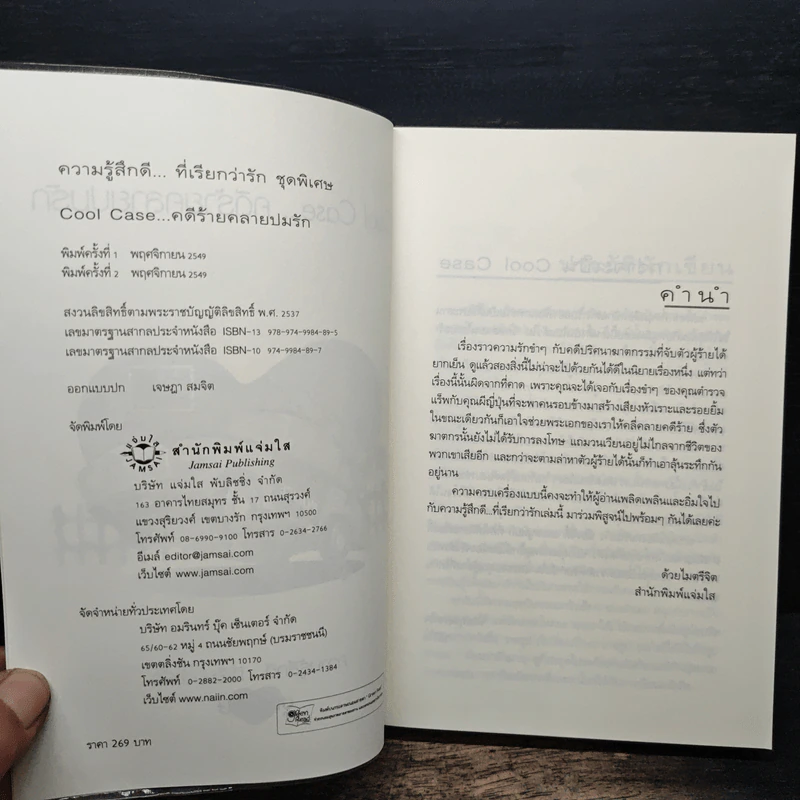 ความรู้สึกดี... ที่เรียกว่ารัก ชุดพิเศษ
Cool Case...คดีร้ายคลายปมรัก
พิมพ์ครั้งที่ 1 พฤศจิกายน 2549
พิมพ์ครั้งที่ 2 พฤศจิกายน 2549
สงวนลิขสิทธิ์ตามพระราชบัญญัติลิขสิทธิ์ พ.ศ. 2537
เลขมาตรฐานสากลประจำหนังสือ ISBN-13 978-974-9984-89-5
เลขมาตรฐานสากลประจำหนังสือ ISBN-10 974-9984-89-7
ออกแบบปก เจษฎา สมจิต
จัดพิมพ์โดย
แจ่มใส
JAMSAI
สำนักพิมพ์แจ่มใส
Jamsai Publishing
บริษัท แจ่มใส พับลิชชิ่ง จำกัด
163 อาคารไทยสมุทร ชั้น 17 ถนนสุรวงศ์
แขวงสุริยวงศ์ เขตบางรัก กรุงเทพฯ 10500
โทรศัพท์ 08-6990-9100 โทรสาร 0-2634-2766
อีเมล์ editor@jamsai.com
เว็บไซต์ www.jamsai.com
จัดจำหน่ายทั่วประเทศโดย
บริษัท อมรินทร์ บุ๊ค เซ็นเตอร์ จำกัด
65/60-62 หมู่ 4 ถนนชัยพฤกษ์ (บรมราชชนนี)
เขตตลิ่งชัน กรุงเทพฯ 10170
โทรศัพท์ 0-2882-2000 โทรสาร 0-2434-1384
เว็บไซต์ www.naiin.com
ราคา 269 บาท
คำนำ
เรื่องราวความรักขำๆ กับคดีปริศนาฆาตกรรมที่จับตัวผู้ร้ายได้
ยากเย็น ดูแล้วสองสิ่งนี้ไม่น่าจะไปด้วยกันได้ดีในนิยายเรื่องหนึ่ง แต่ทว่า
เรื่องนี้นั้นผิดจากที่คาด เพราะคุณจะได้เจอกับเรื่องขำๆ ของคุณตำรวจ
แร็พกับคุณผีญี่ปุ่นที่จะพาคนรอบข้างมาสร้างเสียงหัวเราะและรอยยิ้ม
ในขณะเดียวกันก็เอาใจช่วยพระเอกของเราให้คลี่คลายคดีร้าย ซึ่งตัว
ฆาตกรนั้นยังไม่ได้รับการลงโทษ แถมวนเวียนอยู่ไม่ไกลจากชีวิตของ
พวกเขาเสียอีก และกว่าจะตามล่าหาตัวผู้ร้ายได้นั้นก็ทำเอาลุ้นระทึกกัน
อยู่นาน
ความครบเครื่องแบบนี้คงจะทำให้ผู้อ่านเพลิดเพลินและอิ่มใจไป
กับความรู้สึกดี...ที่เรียกว่ารักเล่มนี้ มาร่วมพิสูจน์ไปพร้อมๆ กันได้เลยค่ะ
ด้วยไมตรีจิต
สำนักพิมพ์แจ่มใส